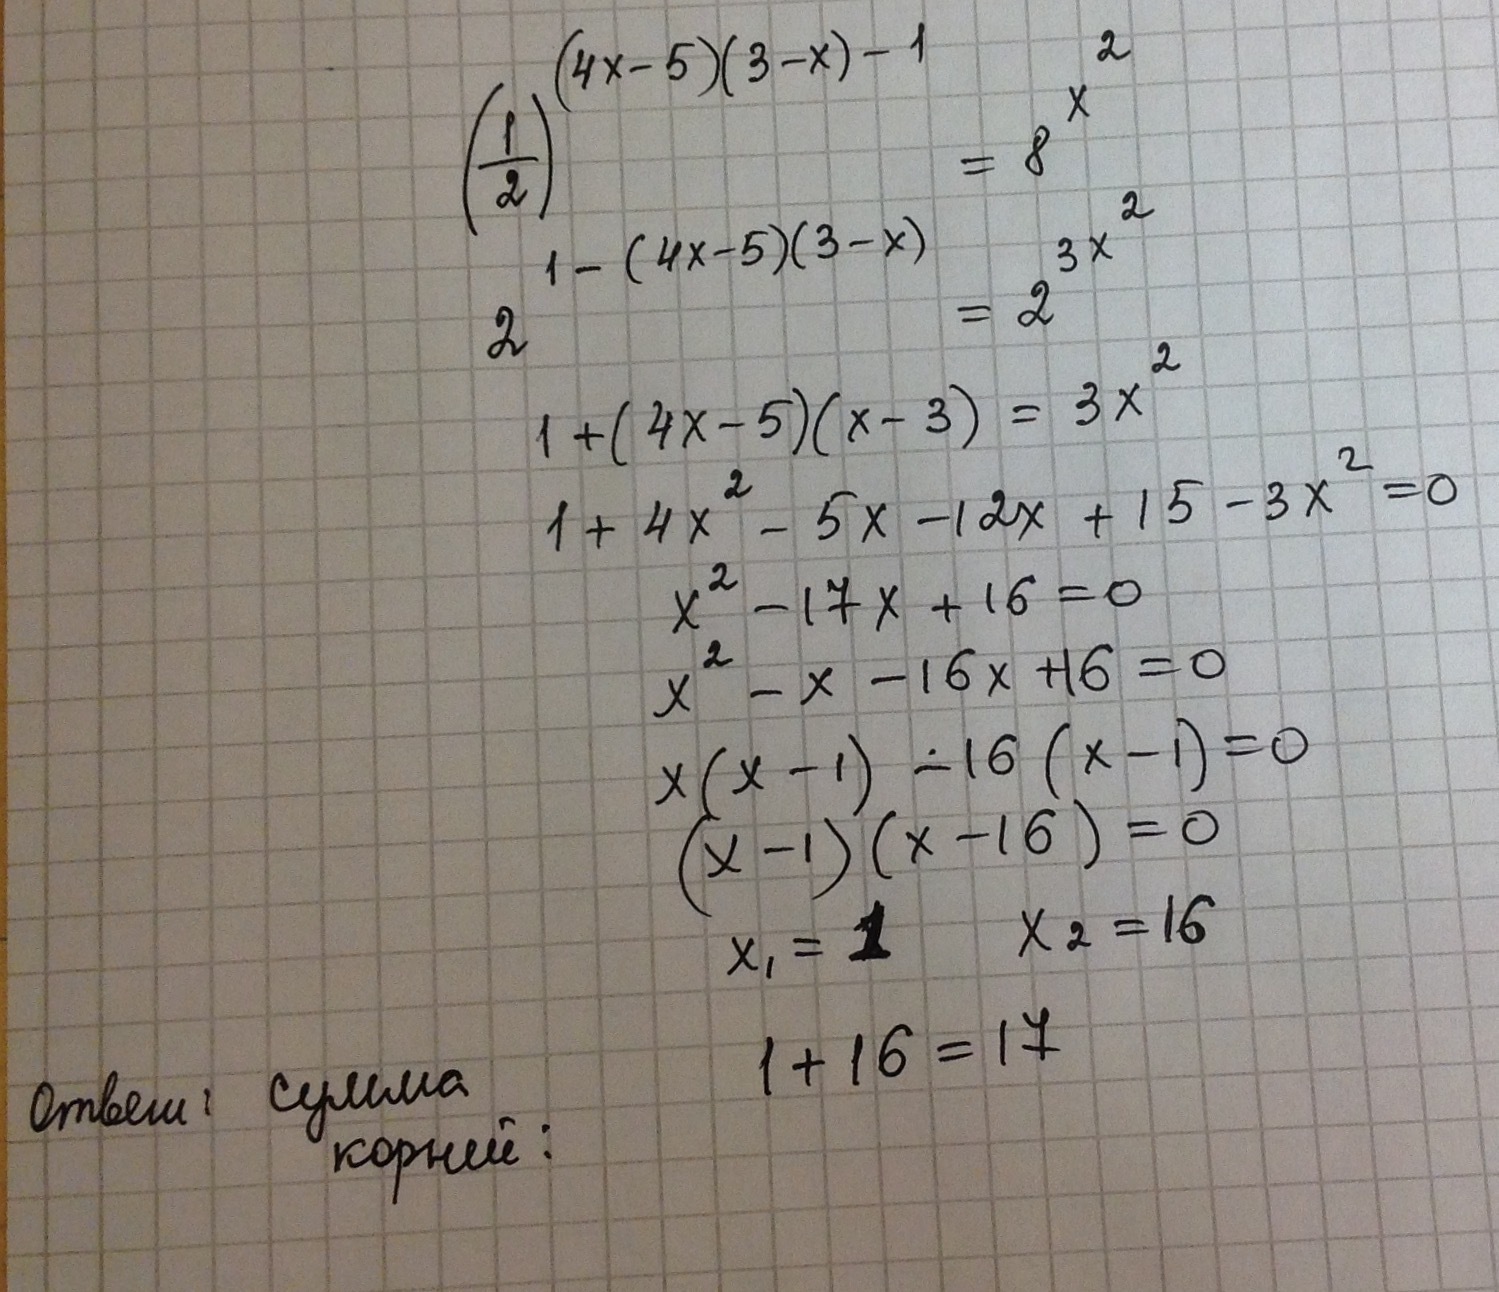 (1/2)^((4x-5)(3-x)-1) = 8^(x^2)
2^(1-(4x-5)(3-x)) = 2^(3x^2)
1+(4x-5)(x-3) = 3x^2
1+4x^2-5x-12x+15-3x^2=0
x^2-17x+16=0
x^2-x-16x+16=0
x(x-1)-16(x-1)=0
(x-1)(x-16)=0
x₁=1 x₂=16
1+16=17
Ответ: сумма
корней: